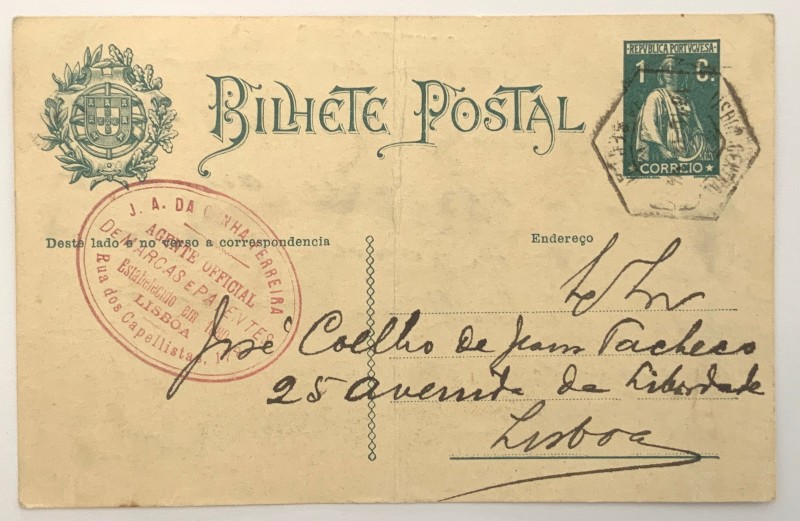 REPVBLICA PORTVGVESA
1 C.
CORREIO
BILHETE POSTAL
J. A. DA CUNHA FERREIRA
AGENTE OFFICIAL
DE MARCAS E PATENTES
Estabelecido em
LISBOA
Rua dos Capellistas,
Deste lado e no verso a correspondencia
Endereço
José Coelho de Jesus Pacheco
25 Avenida da Liberdade
Lisboa